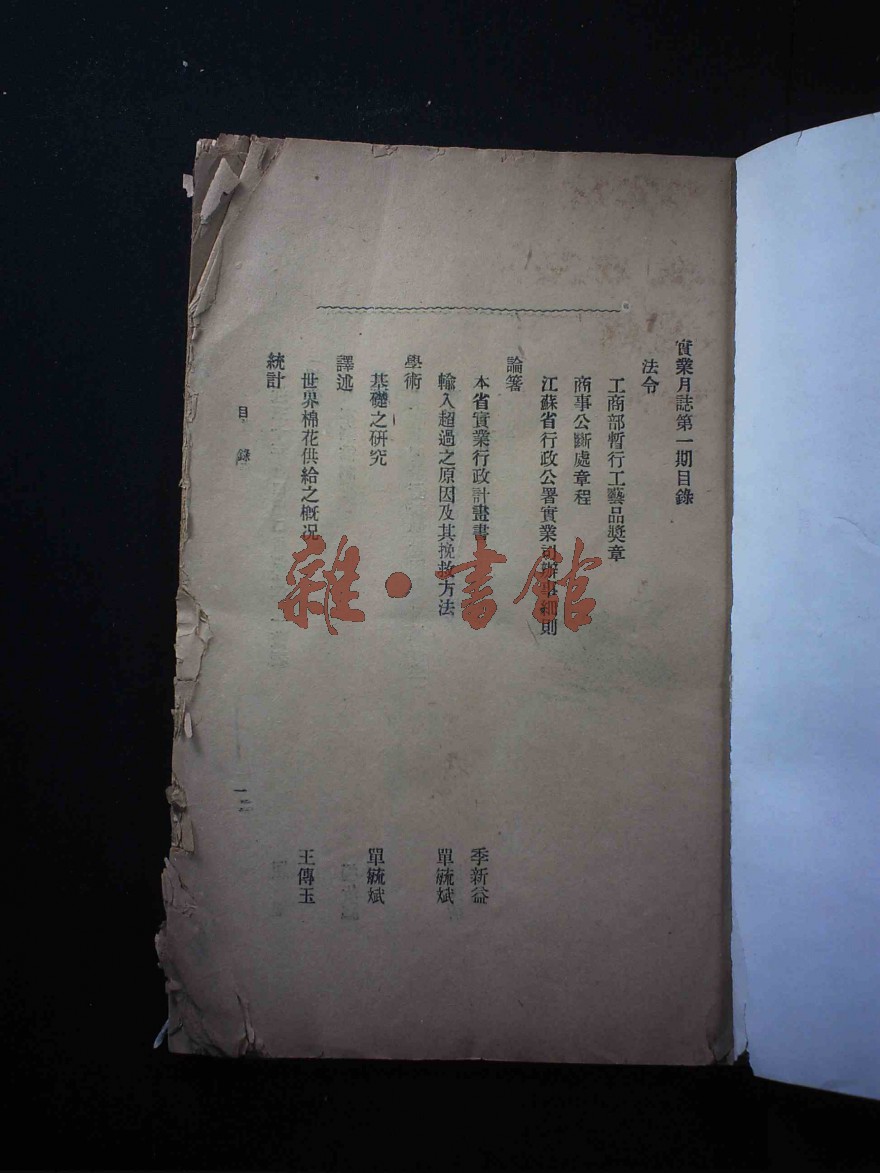 實業月誌第一期目錄
法令
工商部暫行工藝品獎章
商事公斷處章程
江蘇省行政公署實業司辦事細則
論箸
本省實業行政計畫書 季新益
輸入超過之原因及其挽救方法 單毓斌
學術
基礎之研究 單毓斌
譯述
世界棉花供給之概况 王傳玉
統計
目錄
一
雜·書館